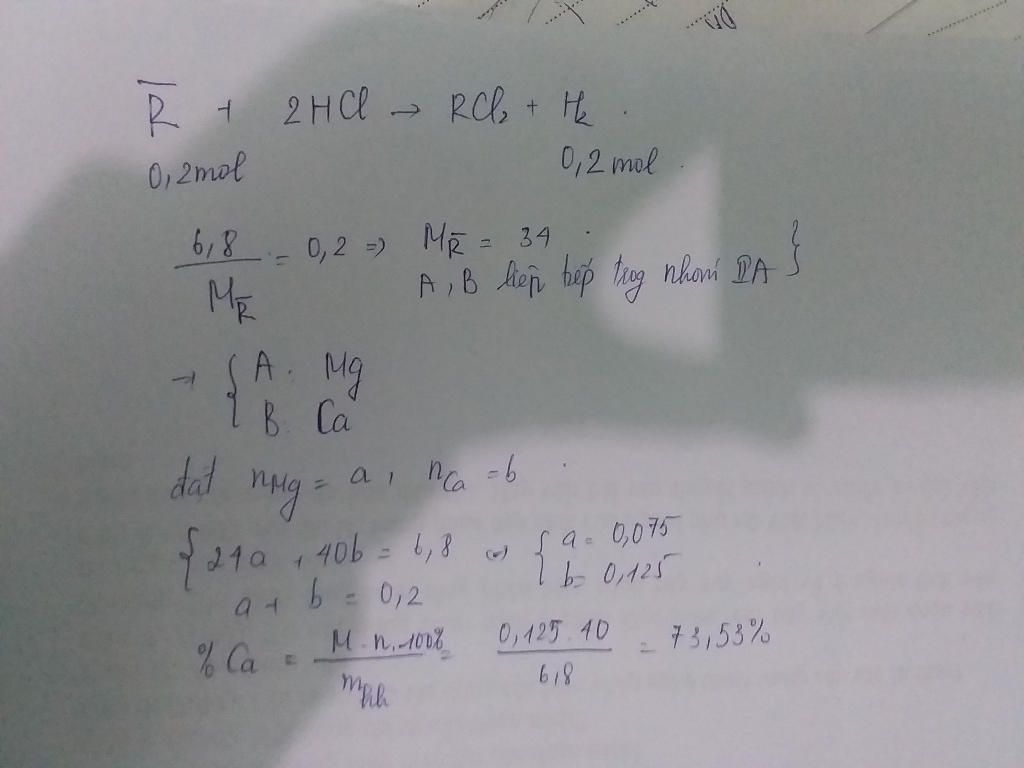 R̅ + 2HCl → RCl₂ + H₂
0,2mol 0,2mol
6,8 / M_R̅ = 0,2 => M_R̅ = 34
A, B liên tiếp trog nhóm IIA }
→ { A: Mg
B: Ca
đặt nMg = a, nCa = b
{ 24a + 40b = 6,8 <=> { a = 0,075
a + b = 0,2 b = 0,125
%Ca = M.n.100% / mhh = 0,125.40 / 6,8 = 73,53%